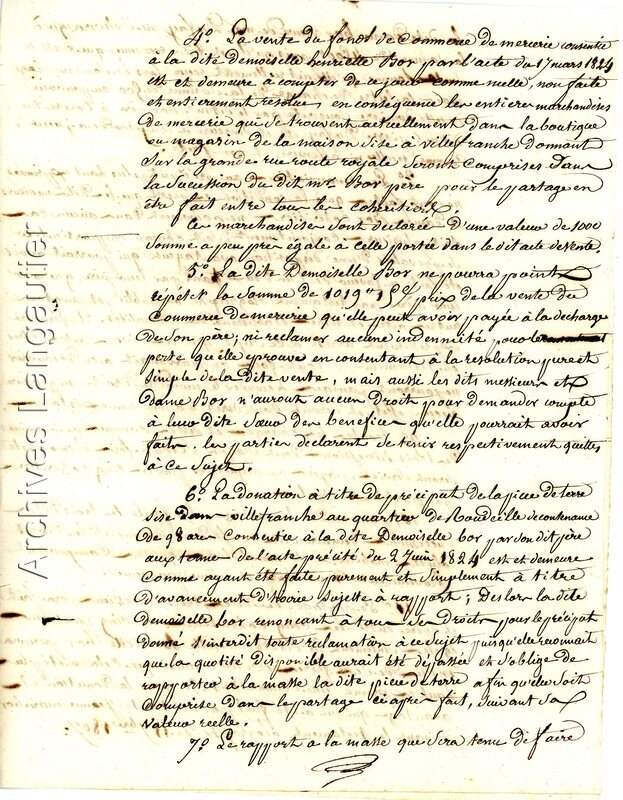 4.o La vente du fond de Commerce de mercerie consentie
à la dite Demoiselle henriette Bor par l'acte du 17 mars 1824
est et demeure à compter de ce jour comme nulle, non faite
et entierement resolue, en consequence les entieres marchandises
de mercerie qui se trouvent actuellement dans la boutique
ou magazin de la maison sise à villefranche donnant
Sur la grande rue route royale seront Comprises dans
la Sucession du dit mr. Bor père pour le partage en
être fait entre tous les coheritiers.
Ces marchandises sont declarées d'une valeur de 1000
Somme a peu près égale à celle portée dans le dit acte de vente.
5.o La dite Demoiselle Bor ne pourra point
repéter la Somme de 1019 15 prix de la vente du
Commerce de mercerie qu'elle peut avoir payée à la decharge
de Son père; ni reclamer aucune indemnité pour la
perte qu'elle eprouve en consentant à la resolution pure et
Simple de la dite vente, mais aussi les dits messieurs et
Dame Bor n'auront aucun Droit pour demander compte
à leur dite Sœur des benefices qu'elle pourrait avoir
faits. les parties declarent se tenir respectivement quittes
à ce Sujet.
6.o La donation à titre de préciput de la piece de terre
sise dans villefranche au quartier de Roudeille de contenance
de 98 ares Consentie à la dite Demoiselle bor par son dit père
aux termes de l'acte précité du 2 Juin 1824 est et demeure
Comme ayant été faite purement et Simplement à titre
d'avancement d'hoirie Sujette à rapport; Des lors la dite
demoiselle bor renoncant à tous ses Droits pour le préciput
donné s'interdit toute reclamation à ce Sujet puis qu'elle reconnait
que la quotité disponible aurait été dépassée et s'oblige de
rapporter à la masse la dite piece de terre afin qu'elle soit
Comprise dans le partage ci après fait, suivant sa
valeur reelle.
7.o Le rapport a la masse que sera tenu de faire
Archives Langautier